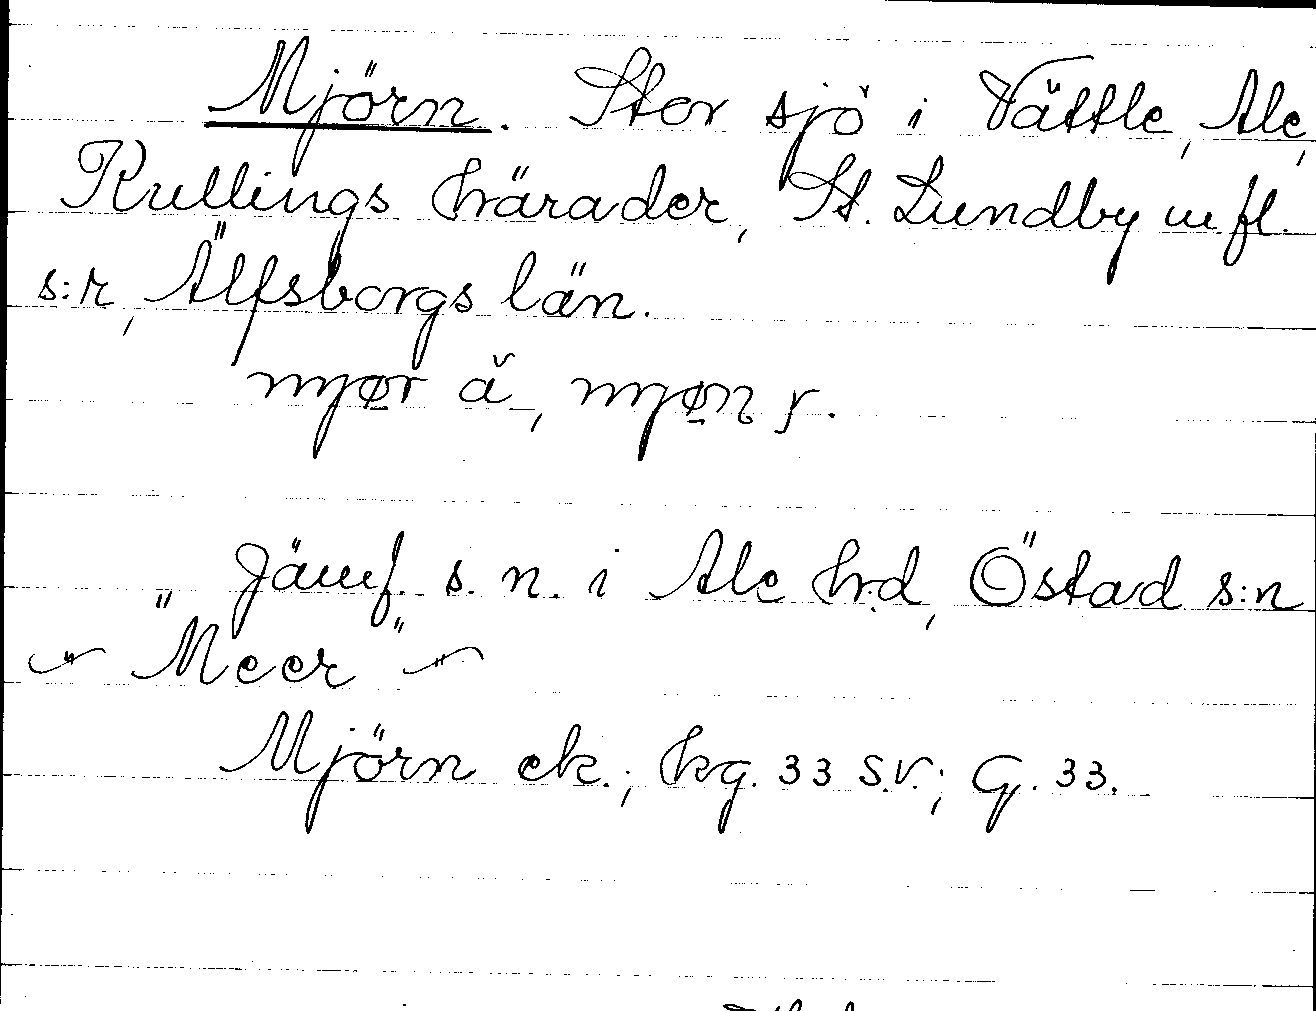 Mjörn. Stor sjö i Vättle, Ale,
Kullings härader, St. Lundby m fl.
s:r, Älfsborgs län.
mjør ǎ, mjøn f.
Jämf. s. n. i Ale h:d, Östad s:n
"Meer"
Mjörn ek.; hg. 33 S.V.; G. 33.